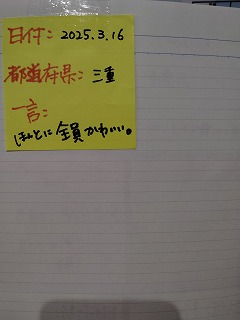 日付：2025.3.16
都道府県：三重
一言：
ほんとに全員かわいい。